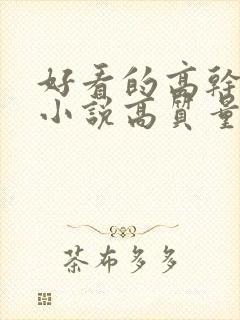 好看的高幹
小説高質量
茶布多多